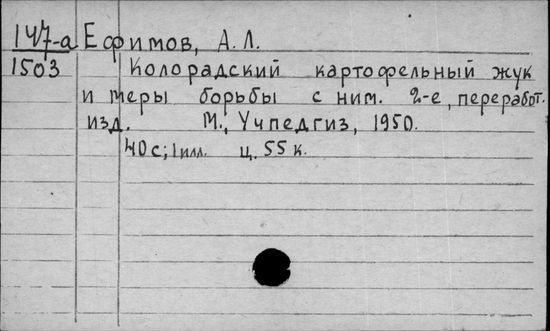 147-а Ефимов, А. Л.
1503 Колорадский картофельный жук
и меры борьбы с ним. 2-е, переработ.
изд. М., Учпедгиз, 1950.
40 с; 1 илл. ц. 55 к.